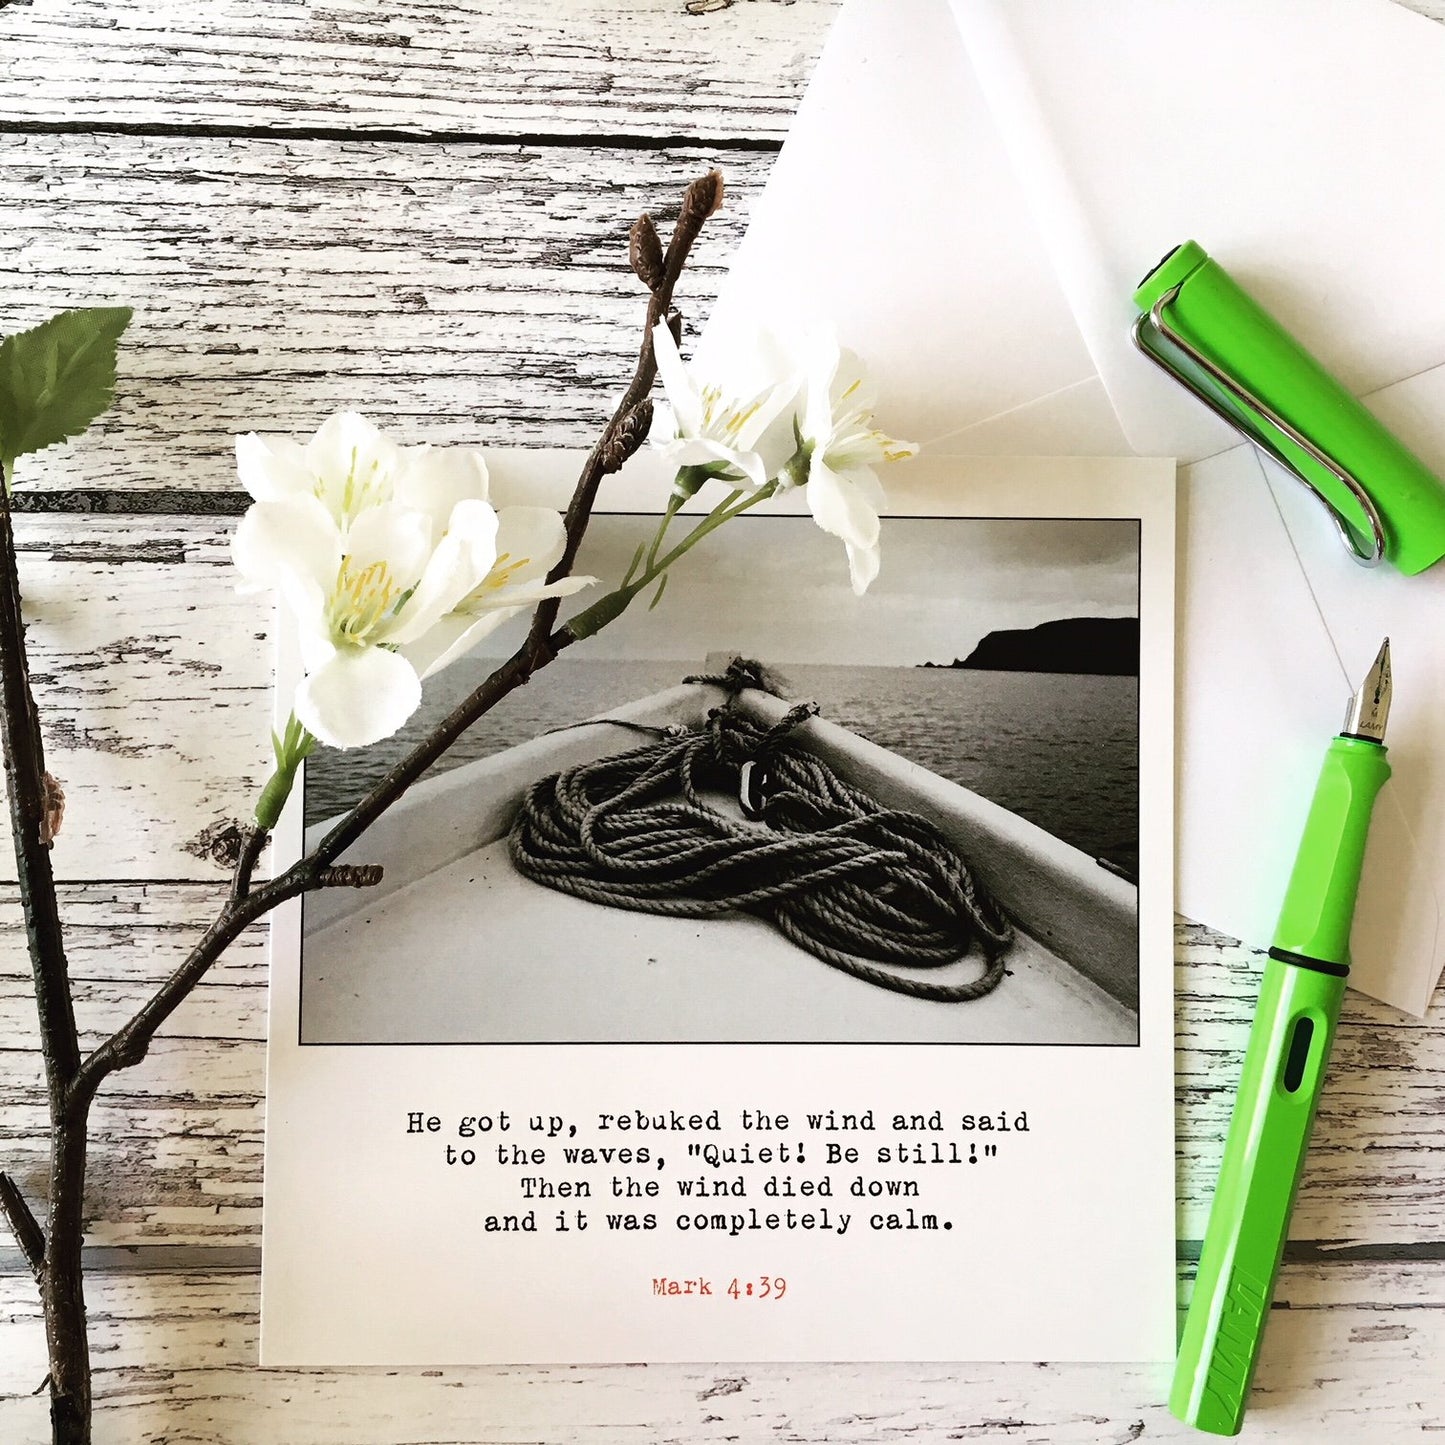 He got up, rebuked the wind and said
to the waves, "Quiet! Be still!"
Then the wind died down
and it was completely calm.
Mark 4:39
M
LAMY
LAMY